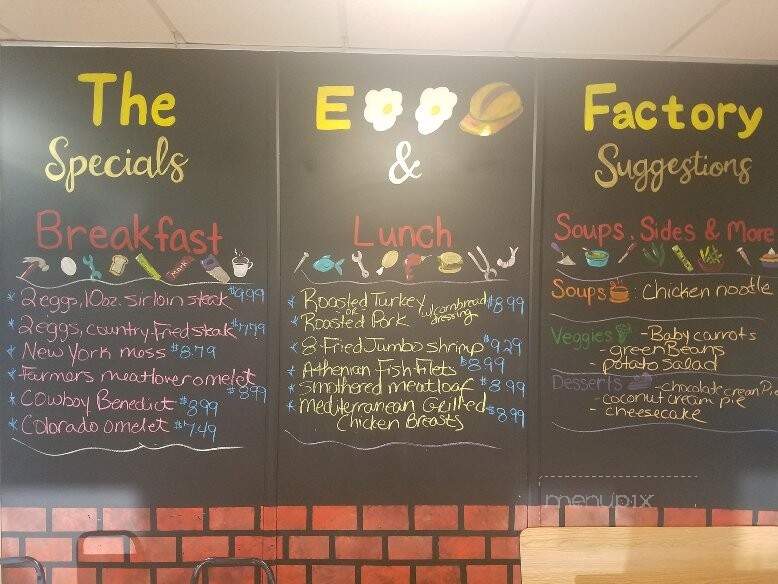 The
Specials
Breakfast
* 2 eggs, 10oz. sirloin steak $9.99
* 2 eggs, country Fried steak $7.99
* New York moss $8.79
* Farmers meatlover omelet
$8.99
* Cowboy Benedict $8.99
* Colorado omelet $7.49
E
&
Lunch
* Roasted Turkey
or
Roasted Pork w/cornbread dressing $8.99
* 8-Fried Jumbo shrimp $9.29
* Athenian Fish Filets $8.99
* Smothered meatloaf $8.99
* Mediterranean Grilled $8.99
Chicken Breasts
Factory
Suggestions
Soups, Sides & More
Soups : Chicken noodle
Veggies - Baby carrots
- green Beans
- potato salad
Desserts - chocolate cream Pie
- coconut cream pie
- cheesecake
menupix